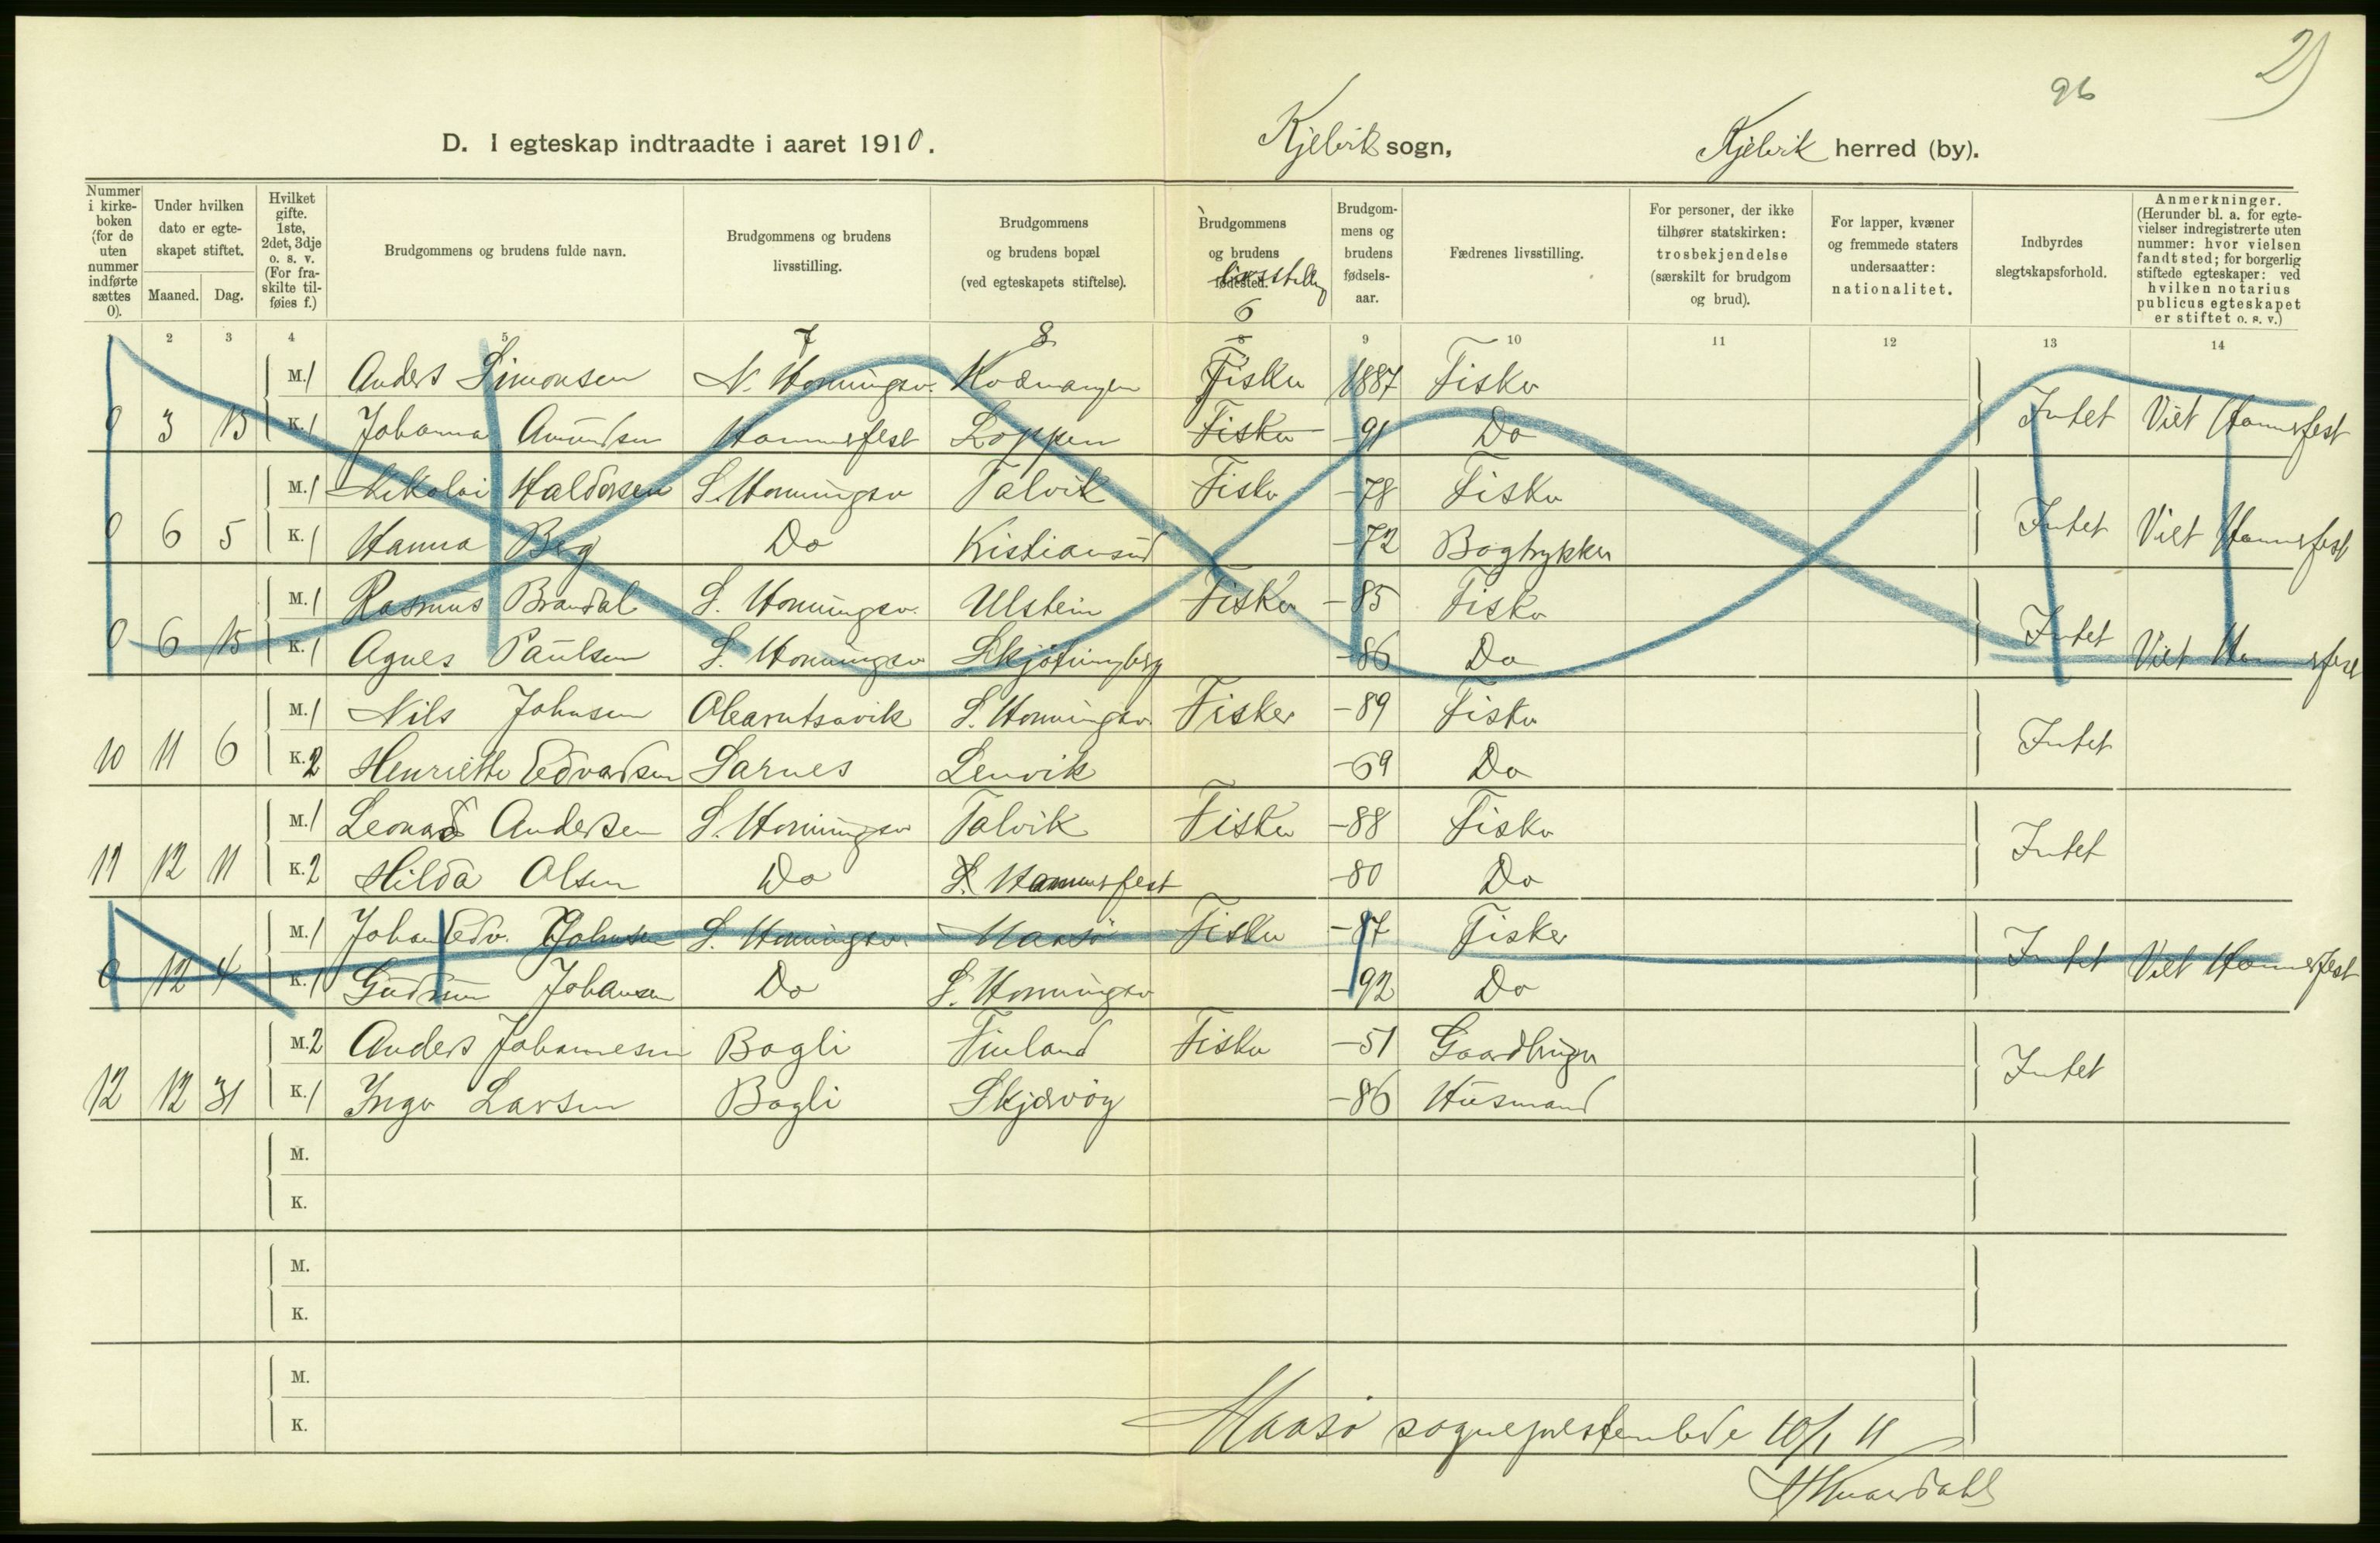 2)
96
D. I egteskap indtraadte i aaret 1910. Kjelvik sogn, Kjelvik herred (by).
Nummer i kirkeboken (for de uten nummer indførte sættes 0).
Under hvilken dato er egteskapet stiftet.
Maaned. Dag.
Hvilket gifte. 1ste, 2det, 3dje o. s. v. (For fraskilte tilføies f.)
Brudgommens og brudens fulde navn.
Brudgommens og brudens livsstilling.
Brudgommens og brudens bopæl (ved egteskapets stiftelse).
Brudgommens og brudens fødested. livsstilling
Brudgommens og brudens fødselsaar.
Fædrenes livsstilling.
For personer, der ikke tilhører statskirken: trosbekjendelse (særskilt for brudgom og brud).
For lapper, kvæner og fremmede staters undersaatter: nationalitet.
Indbyrdes slegtskapsforhold.
Anmerkninger. (Herunder bl. a. for egtevielser indregistrerte uten nummer: hvor vielsen fandt sted; for borgerlig stiftede egteskaper: ved hvilken notarius publicus egteskapet er stiftet o. s. v.)
2 3 4 5 7 8 6 9 10 11 12 13 14
M. 1 Anders Simonsen N. Honningsv. Kvænangen Fisker 1887 Fisker
0 3 13 K. 1 Johanna Amundsen Hammerfest Loppen Fisker -91 Do Intet Viet Hammerfest
M. 1 Nikolai Haldorsen S. Honningsv Talvik Fisker -78 Fisker
0 6 5 K. 1 Hanna Berg Do Kristiansund -72 Bogtrykker Intet Viet Hammerfest
M. 1 Rasmus Brandal S. Honningsv. Ulstein Fisker -85 Fisker
0 6 15 K. 1 Agnes Paulsen S. Honningsv Skjötningberg -86 Do Intet Viet Hammerfest
M. 1 Nils Johnsen S. Honningsv. Fisker -89 Fisker
10 11 6 K. 2 Henriette Edvardsen Sarnes Lenvik -69 Do Intet
M. 1 Leonard Andersen S. Honningsv Talvik Fisker -88 Fisker
11 12 11 K. 2 Hilda Olsen Do Hammerfest -80 Do Intet
M. 1 Johan Edv. Johnsen S. Honningsv. Maasö Fisker -87 Fisker
0 12 4 K. 1 Gudrun Johansen Do S. Honningsv -92 Do Intet Viet Hammerfest
M. 2 Anders Johannesen Bogli Finland Fisker -51 Gaardbruger
12 12 31 K. 1 Inga Larsen Bogli Skjærvöy -86 Husmand Intet
M.
K.
M.
K.
M.
K.
Maasö sogneprestembede 10/1 11